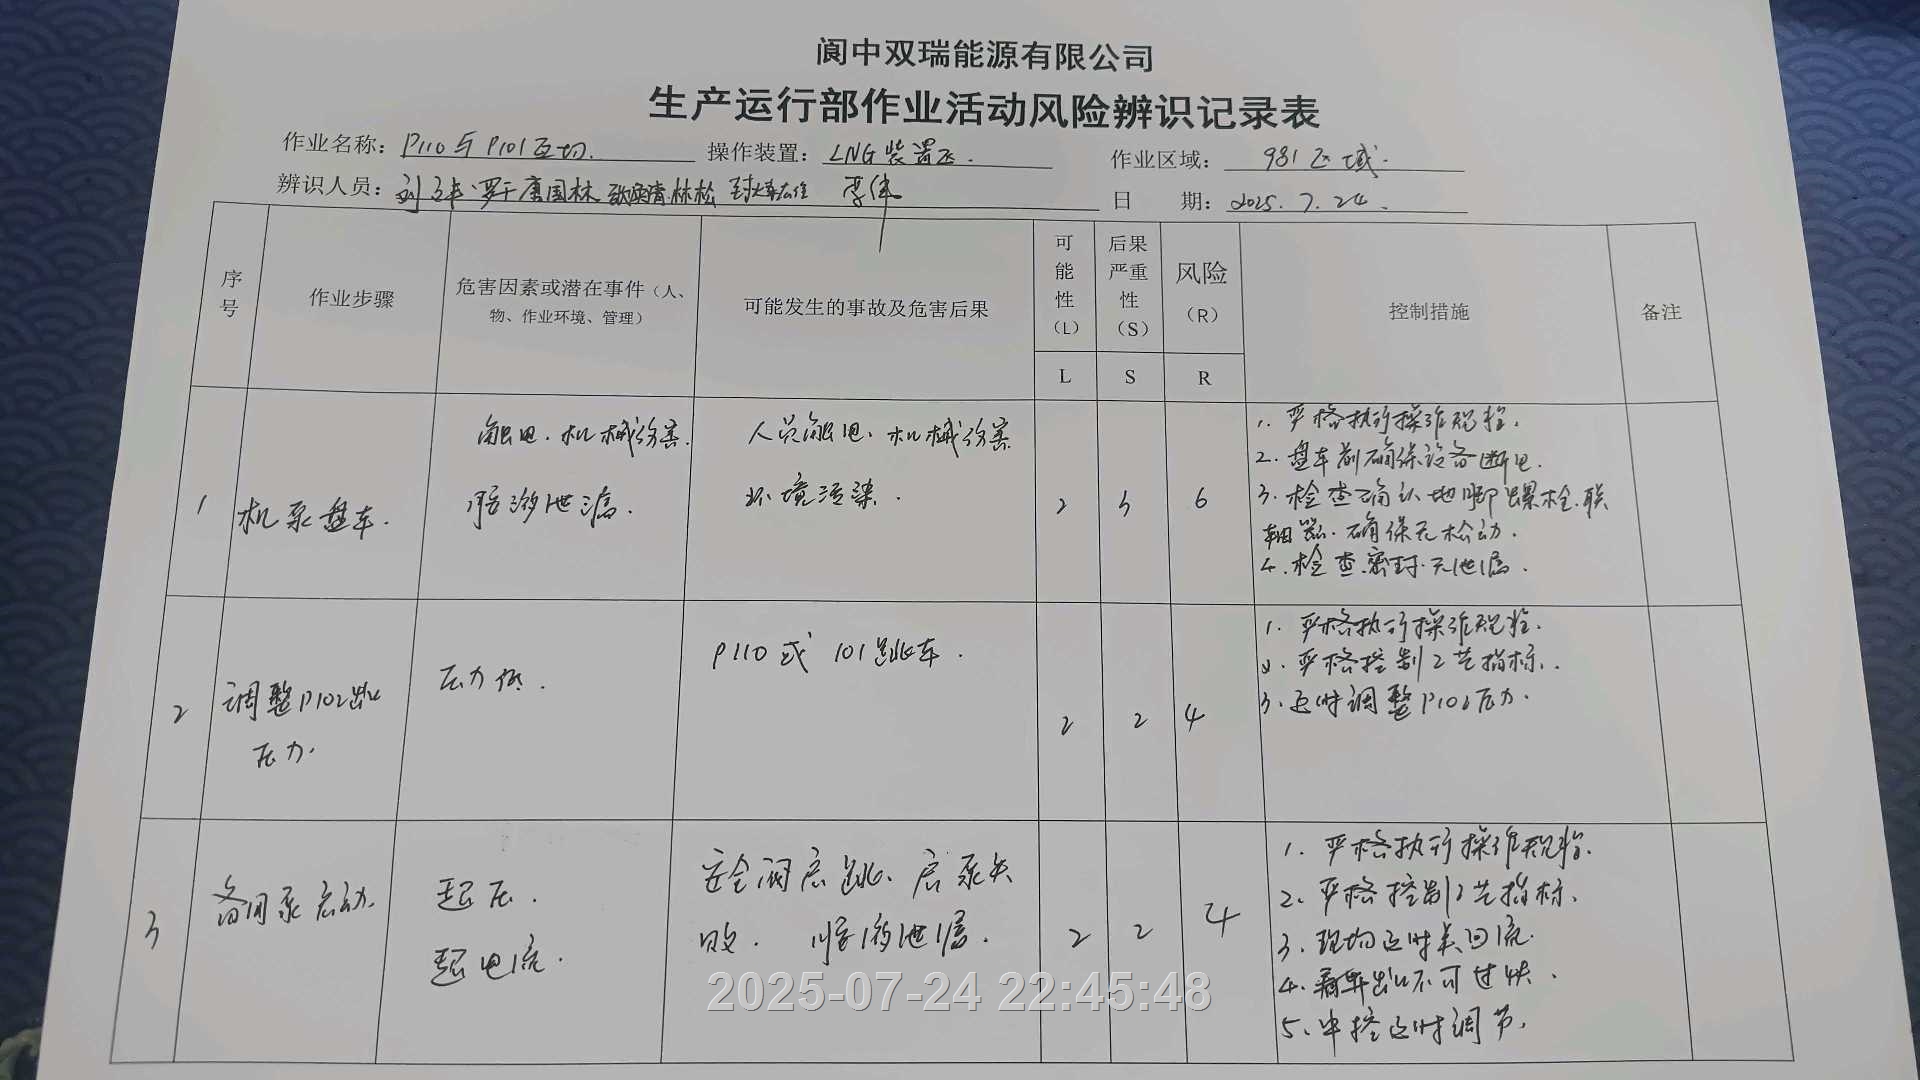 阆中双瑞能源有限公司
生产运行部作业活动风险辨识记录表
作业名称：P110与P101互切. 操作装置：LNG装置区. 作业区域：981区域.
辨识人员： 唐国林 林松 李伟 日期：2025.7.24.
序号 作业步骤 危害因素或潜在事件（人、物、作业环境、管理） 可能发生的事故及危害后果 可能性（L） 后果严重性（S） 风险（R） 控制措施 备注
L S R
1 机泵盘车.
触电、机械伤害.
胺液泄漏.
人员触电、机械伤害
环境污染.
2 3 6
1. 严格执行操作规程.
2. 盘车前确保设备断电.
3. 检查确认地脚螺栓.联
轴器.确保无松动.
4. 检查密封无泄漏.
2 调整P102出口
压力.
压力低.
P110或101跳车.
2 2 4
1. 严格执行操作规程.
2. 严格控制工艺指标.
3. 及时调整P102压力.
3 备用泵启动.
超压.
超电流.
安全阀启跳、启泵失
败. 胺液泄漏.
2 2 4
1. 严格执行操作规程.
2. 严格控制工艺指标.
3. 现场及时关回流.
4. 出口不可过快.
5. 中控及时调节.
2025-07-24 22:45:48